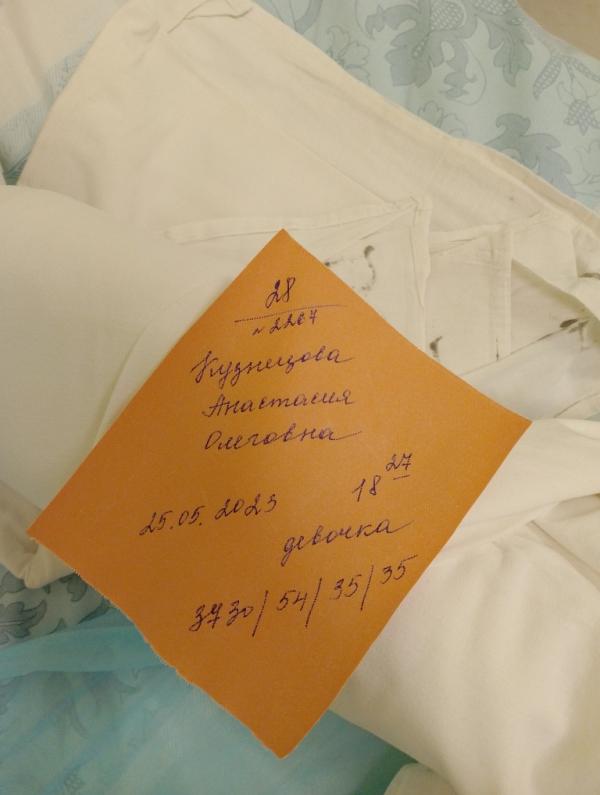 28
№2267
Кузнецова
Анастасия
Олеговна
25.05.2023 18 27
девочка
3730/54/35/35